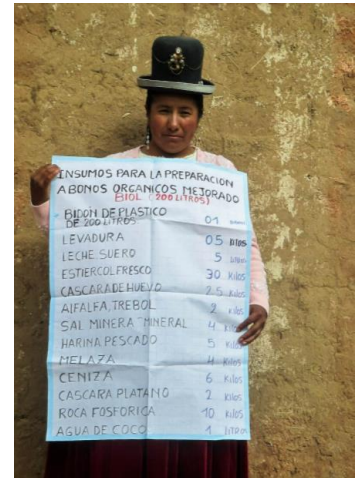 INSUMOS PARA LA PREPARACION
ABONOS ORGANICOS MEJORADO
BIOL (200 LITROS)
BIDON DE PLASTICO
DE 200 LITROS 01
LEVADURA 05
LECHE SUERO 5
ESTIERCOL FRESCO 30 Kilos
CASCARA DE HUEVO 2.5 Kilos
AlFALFA, TREBOL 2 Kilos
SAL MINERA MINERAL 4 Kilos
HARINA PESCADO 5 Kilos
MELAZA 4 Kilos
CENIZA 6 Kilos
CASCARA PLATANO 2 Kilos
ROCA FOSFORICA 10 Kilos
AGUA DE COCO 1 litros